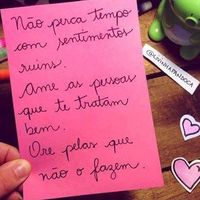 Não perca tempo
com sentimentos
ruins.
Ame as pessoas
que te tratam
bem.
Ore pelas que
não o fazem.